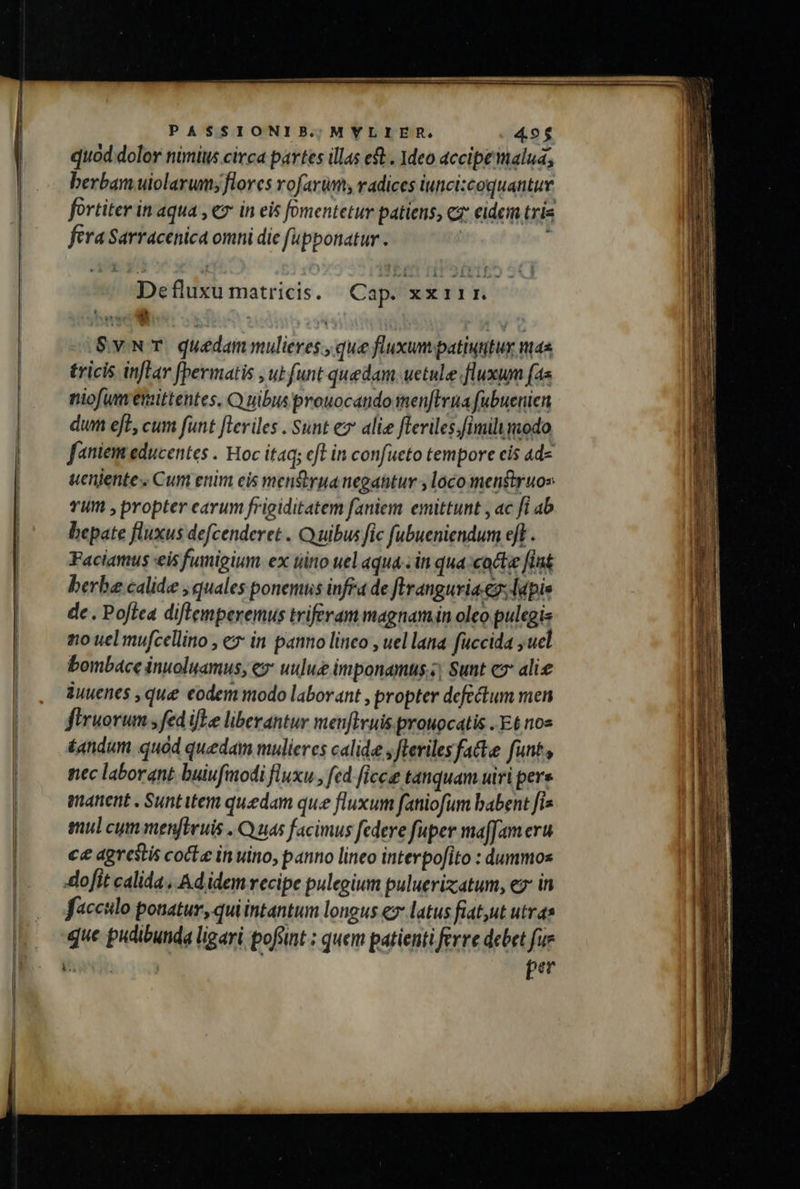 PASSIONIB. MVLIER. 495
quòd dolor nimius circa partes illas est. Ideo accipe malua,
herbam uiolarum, flores rosarum, radices iunci: coquantur
fortiter in aqua, & in eis fomentetur patiens, & eidem tris
fera Sarracenica omni die supponatur.
De fluxu matricis. Cap. XXIII.
SVNT quædam mulieres, quæ fluxum patiuntur ma=
tricis instar spermatis, ut sunt quædam uetulæ fluxum sa=
niosum emittentes. Quibus prouocando menstrua subuenien
dum est, cum sunt steriles. Sunt & aliæ steriles, simili modo
saniem educentes. Hoc itaq; est in consueto tempore eis ad=
ueniente. Cum enim eis menstrua negantur, loco menstruo=
rum, propter earum frigiditatem saniem emittunt, ac si ab
hepate fluxus descenderet. Quibus sic subueniendum est.
Faciamus eis fumigium ex uino uel aqua, in qua coctæ sint
herbæ calidæ, quales ponemus infrà de stranguria & lapi=
de. Postea distemperemus triferam magnam in oleo pulegi=
no uel muscellino, & in panno lineo, uel lana succida, uel
bombace inuoluamus, & uuluæ imponamus. Sunt & aliæ
iuuenes, quæ eodem modo laborant, propter defectum men
struorum, sed istæ liberantur menstruis prouocatis. Et no=
tandum quòd quædam mulieres calidæ, steriles factæ sunt,
nec laborant huiusmodi fluxu, sed siccæ tanquam uiri per=
manent. Sunt item quædam quæ fluxum saniosum habent si=
mul cum menstruis. Quas facimus sedere super massam eru
cæ agrestis coctæ in uino, panno lineo interposito: dummo=
do sit calida. Ad idem recipe pulegium puluerizatum, & in
sacculo ponatur, qui intantum longus & latus fiat, ut utra=
que pudibunda ligari possint: quem patienti ferre debet su=
per